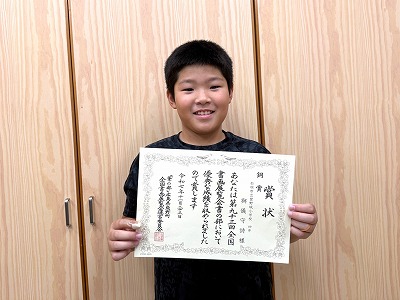 賞状
銅賞
様
あなたは第九十三回全国
書画展覧会書の部において
優秀な成績を収められました
ので賞します
令和七年十
全国書画展覧会